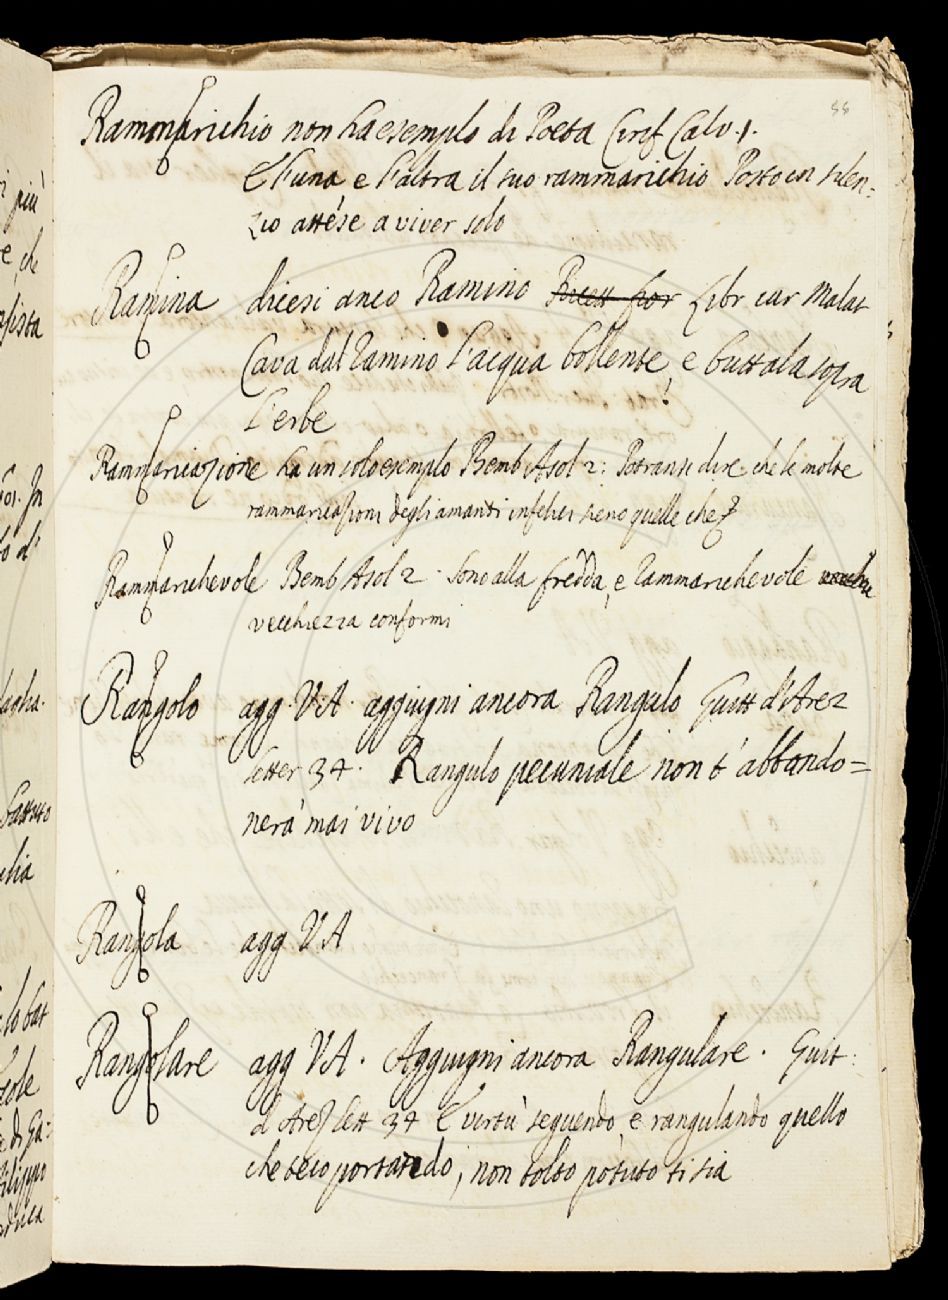 Rammarichio non ha esemplo di Poeta Cirif Calv. 1.
E l'una e l'altra il suo rammarichio Posto in silen=
zio attése a viver solo
Ramina dicesi anco Ramino Ricett fior Libr cur malat
Cava dal ramino l'acqua bollente, e buttala sopra
l'erbe
Rammaricazione ha un solo esemplo Bemb Asol 2: Potransi dire che le molte
rammaricazioni degli amanti infelici sieno quelle che
Rammarichevole Bemb Asol 2. Sono alla fredda, e rammarichevole
vecchiezza conformi
Rangolo agg. V.A. aggiugni ancora Rangulo Guitt d'Arez
letter 34. Rangulo pecuniale non t' abbando=
nerà mai vivo
Rangola agg V A
Rangolare agg V A. Aggiugni ancora Rangulare. Guit:
d Arez lett 34 E vertù seguendo e rangulando quello
che teco portando, non tolto potuto ti sia
più
e, che
batuto
lo bat
di Ga:
Filippo